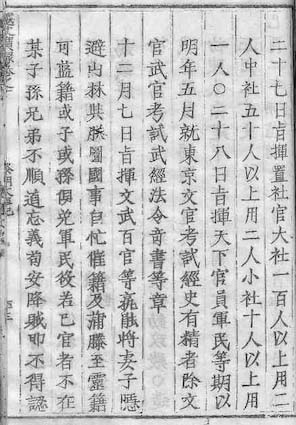 二十七日旨揮置社官大社一百人以上用三
人中社五十人以上用二人小社十人以上用
一人○二十八日旨揮天下官員軍民等期以
明年五月就東京文官考試經史有精者除文
官武官考試武經法令奇書等章
十二月七日旨揮文武百官等能將妻子隱
避山林共勝國事自忙催籍及蒲藤至靈籍
可藍籍或子或孫俱免軍民役若已官者不在
某子孫兄弟不順道忘義苟安降賊叩不得認